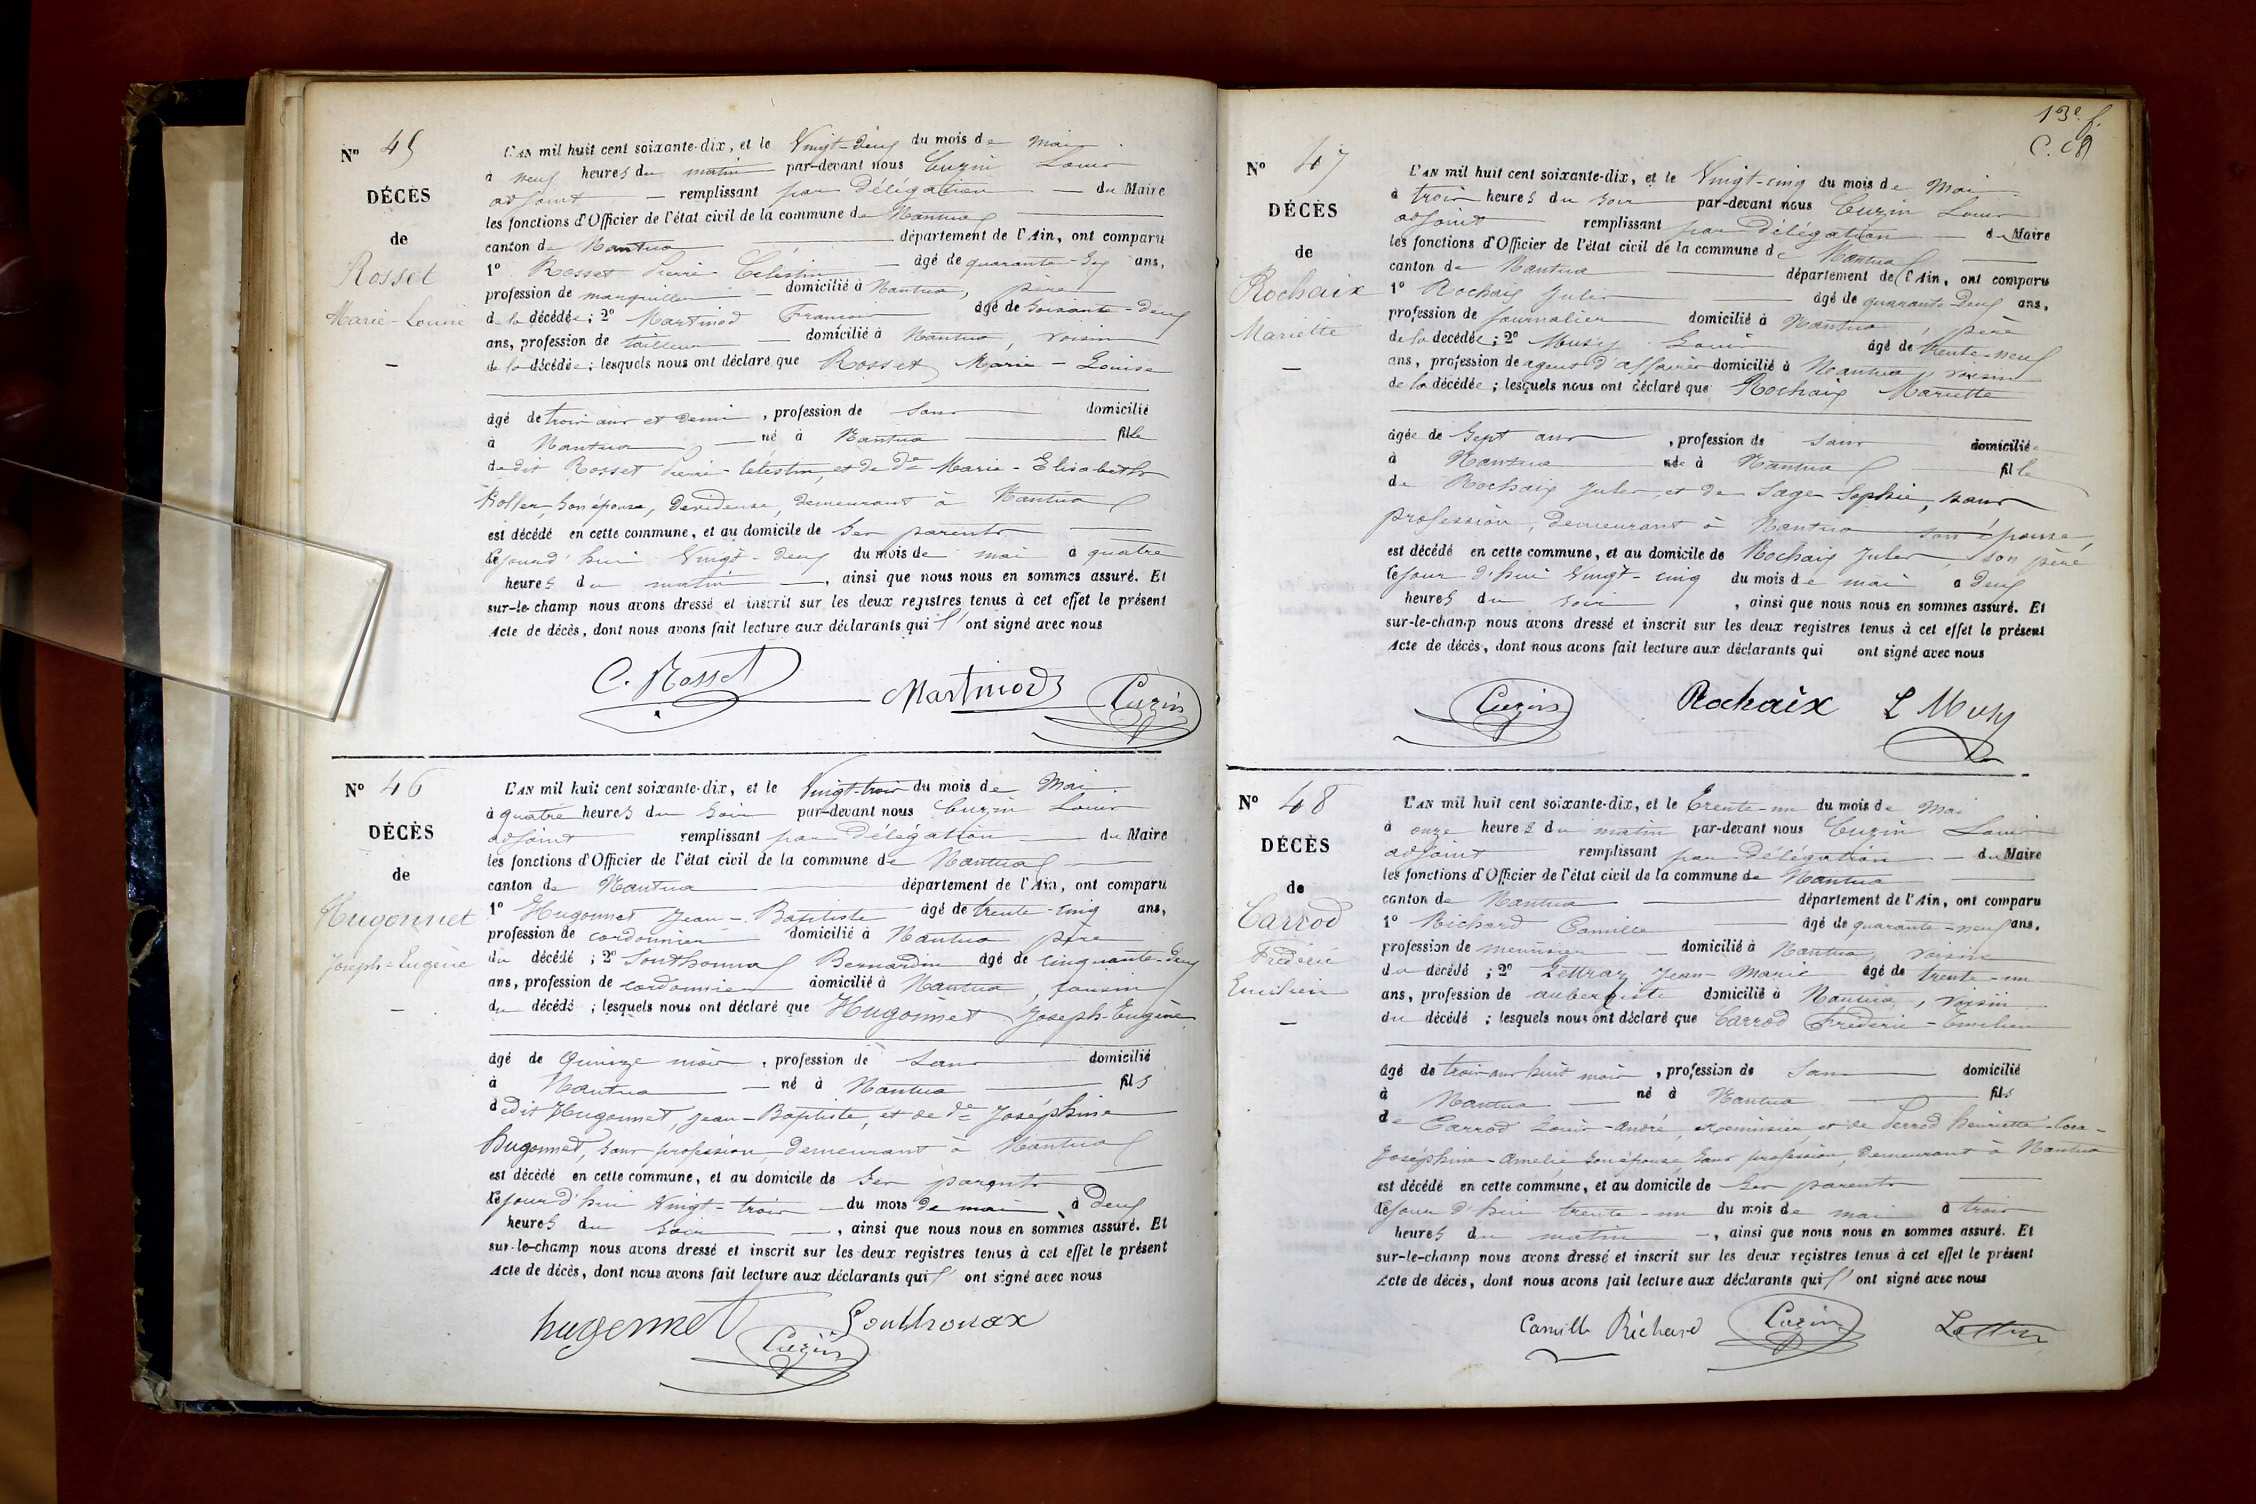 Nº 45
DÉCÈS
de
Rosset
Marie-Louise
L'AN mil huit cent soixante-dix, et le Vingt-deux du mois de Mai
à neuf heures du matin par-devant nous Cuzin Louis
adjoint remplissant par Délégation du Maire
les fonctions d'Officier de l'état civil de la commune de Nantua
canton de Nantua département de l'Ain, ont comparu
1º Rosset Pierre Célestin âgé de quarante-six ans,
profession de marguiller domicilié à Nantua, père
de la décédée; 2º Martinod François âgé de soixante-deux
ans, profession de tailleur domicilié à Nantua, voisin
de la décédée; lesquels nous ont déclaré que Rosset Marie-Louise
âgé de trois ans et demi, profession de sans domicilié
à Nantua né à Nantua fille
de dit Rosset Pierre-Célestin, et de de Marie-Elisabeth
Roller, son épouse, dévideuse, demeurant à Nantua
est décédé en cette commune, et au domicile de ses parents
cejourd'hui Vingt-deux du mois de mai à quatre
heures du matin, ainsi que nous nous en sommes assuré. Et
sur-le-champ nous avons dressé et inscrit sur les deux registres tenus à cet effet le présent
Acte de décès, dont nous avons fait lecture aux déclarants qui l'ont signé avec nous
C. Rosset Martinod Cuzin
Nº 46
DÉCÈS
de
Hugonnet
Joseph-Eugène
L'AN mil huit cent soixante-dix, et le Vingt-trois du mois de Mai
à quatre heures du soir par-devant nous Cuzin Louis
adjoint remplissant par Délégation du Maire
les fonctions d'Officier de l'état civil de la commune de Nantua
canton de Nantua département de l'Ain, ont comparu
1º Hugonnet Jean-Baptiste âgé de trente-cinq ans,
profession de cordonnier domicilié à Nantua père
du décédé; 2º Southonnax Bernardin âgé de cinquante-deux
ans, profession de cordonnier domicilié à Nantua, cousin
du décédé; lesquels nous ont déclaré que Hugonnet Joseph-Eugène
âgé de Quinze mois, profession de sans domicilié
à Nantua né à Nantua fils
de dit Hugonnet, Jean-Baptiste, et de de Joséphine
Hugonnet, sans profession, demeurant à Nantua
est décédé en cette commune, et au domicile de ses parents
cejourd'hui Vingt-trois du mois de mai à Deux
heures du soir, ainsi que nous nous en sommes assuré. Et
sur-le-champ nous avons dressé et inscrit sur les deux registres tenus à cet effet le présent
Acte de décès, dont nous avons fait lecture aux déclarants qui l'ont signé avec nous
hugonnet Southonax
Cuzin
13e f.
Nº 47
DÉCÈS
de
Rochaix
Mariette
L'AN mil huit cent soixante-dix, et le Vingt-cinq du mois de Mai
à trois heures du soir par-devant nous Cuzin Louis
adjoint remplissant par Délégation du Maire
les fonctions d'Officier de l'état civil de la commune de Nantua
canton de Nantua département de l'Ain, ont comparu
1º Rochaix Jules âgé de quarante-deux ans,
profession de journalier domicilié à Nantua, père
de la décédée; 2º Musy Louis âgé de trente-neuf
ans, profession de agent d'affaires domicilié à Nantua, voisin
de la décédée; lesquels nous ont déclaré que Rochaix Mariette
âgée de Sept ans, profession de sans domiciliée
à Nantua née à Nantua fille
de Rochaix Jules, et de Sage Sophie, sans
profession, demeurant à Nantua son épouse,
est décédé en cette commune, et au domicile de Rochaix Jules, son père
cejour d'hui Vingt-cinq du mois de mai à deux
heures du soir, ainsi que nous nous en sommes assuré. Et
sur-le-champ nous avons dressé et inscrit sur les deux registres tenus à cet effet le présent
Acte de décès, dont nous avons fait lecture aux déclarants qui ont signé avec nous
Cuzin Rochaix L Musy
Nº 48
DÉCÈS
de
Carrod
Frédéric
Emilien
L'AN mil huit cent soixante-dix, et le Trente-un du mois de Mai
à onze heures du matin par-devant nous Cuzin Louis
adjoint remplissant par Délégation du Maire
les fonctions d'Officier de l'état civil de la commune de Nantua
canton de Nantua département de l'Ain, ont comparu
1º Richard Camille âgé de quarante-neuf ans,
profession de menuisier domicilié à Nantua, voisin
du décédé; 2º Lettraz Jean-Marie âgé de trente-un
ans, profession de aubergiste domicilié à Nantua, voisin
du décédé; lesquels nous ont déclaré que Carrod Frédéric-Emilien
âgé de trois ans huit mois, profession de sans domicilié
à Nantua né à Nantua fils
de Carrod Louis-André, menuisier et de Henriette
Joséphine-Amélie son épouse sans profession, demeurant à Nantua
est décédé en cette commune, et au domicile de ses parents
cejour d'hui trente-un du mois de mai à trois
heures du matin, ainsi que nous nous en sommes assuré. Et
sur-le-champ nous avons dressé et inscrit sur les deux registres tenus à cet effet le présent
Acte de décès, dont nous avons fait lecture aux déclarants qui l'ont signé avec nous
Camille Richard Cuzin